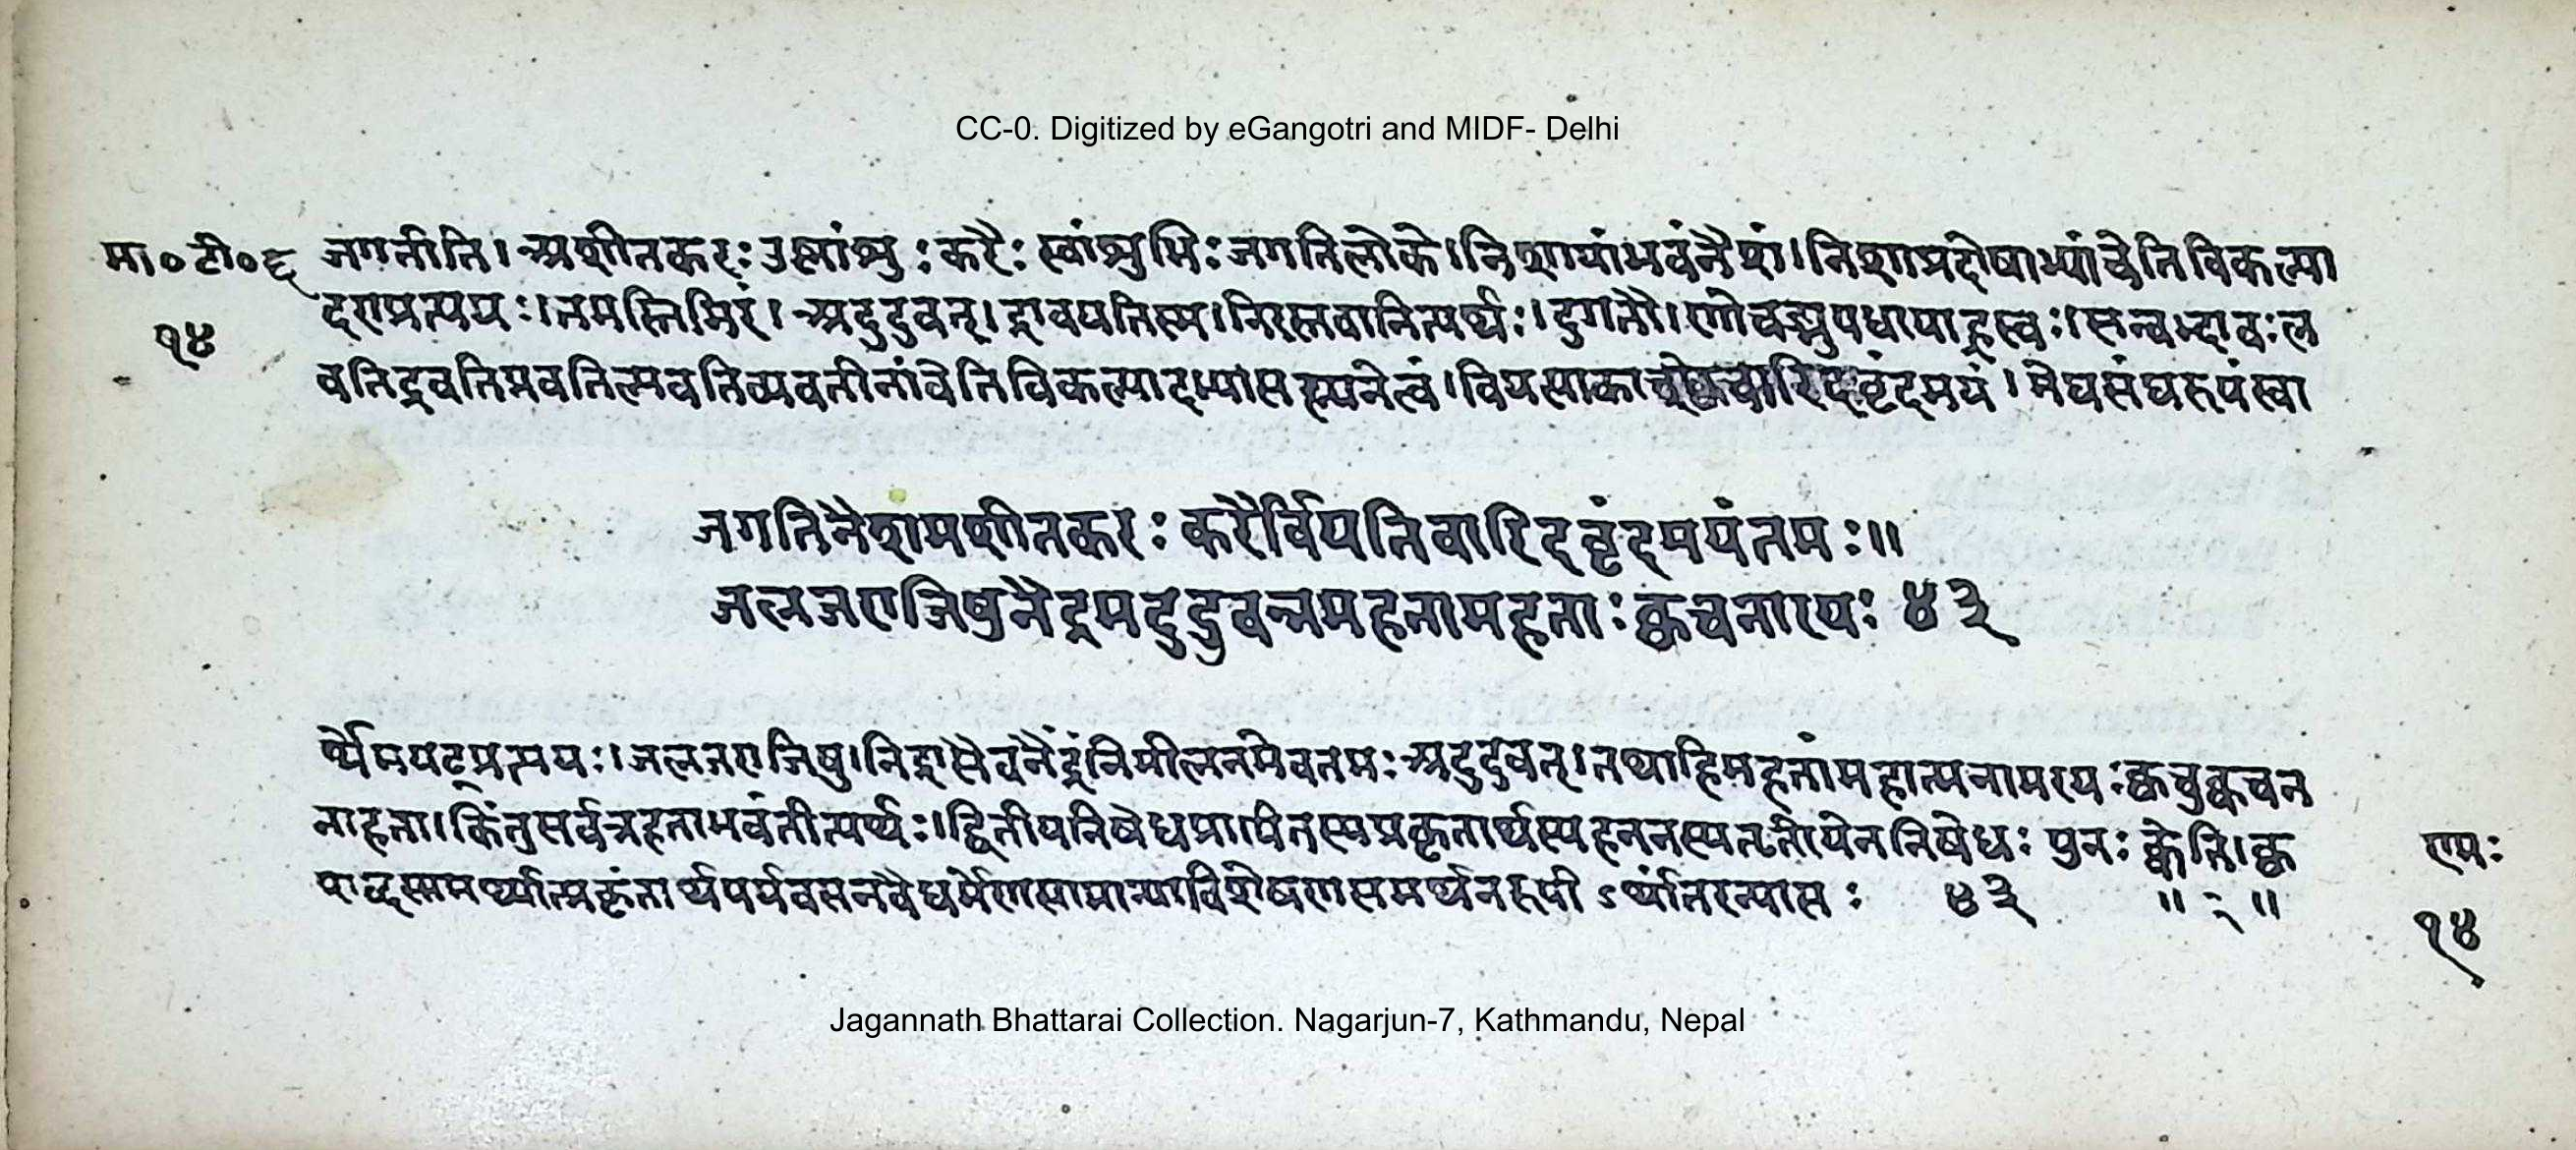 CC-0. Digitized by eGangotri and MIDF- Delhi
मा०टी०६ जगतीति। अशीतकरः उस्रांशुः करैः स्वांशुभिः जगतिलोके। निशायांभवंनैशं। निशाप्रदोषाभ्यांचेतिविकल्पा
१४ दणप्रत्ययः। तमस्तिमिरं। अदुद्रुवत्। द्रावयतिस्म। निरस्तवानित्यर्थः। द्रुगतौ। णौचङ्युपधायाह्रस्वः। सन्वद्भावः ल
वतिद्रवतिप्रवतिप्लवतिच्यवतीनांवेतिविकल्पादभ्यासस्यनेत्वं। वियत्याकाशे वारिदवृंदमयं। मेघसंघरूपंस्वा
जगतिनैशमशीतकरः करैर्वियतिवारिदवृंदमयंतमः॥
जलजराजिषुनैद्रमदुद्रुवन्नमहतामहताः क्वचनारयः ४३
र्थेमयट्प्रत्ययः। जलजराजिषु। निद्रासैवनैद्रंनिमीलनमेवतमः अदुद्रुवत्। तथाहिमहतांमहात्मनामरयः क्वचुक्वचन
नाहता। किंतुसर्वत्रहताभवंतीत्यर्थः। द्वितीयनिषेधप्रापितस्यप्रकृतार्थस्यहननस्यतृतीयेननिषेधः पुनः क्वेति। क्व रामः
शब्दसामर्थ्यात्प्रकृतार्थपर्यवसनवैधर्मेणसामान्याविशेषणसमर्थनरूपो ऽर्थांतरन्यासः ४३ ॥ ॥ १४
Jagannath Bhattarai Collection. Nagarjun-7, Kathmandu, Nepal